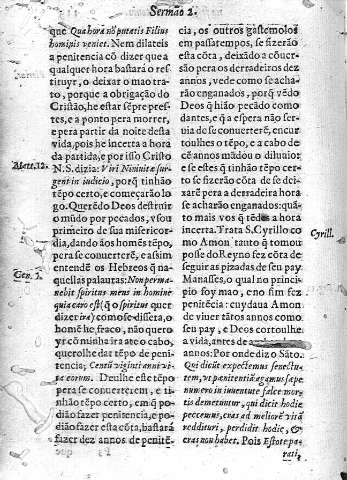 Sermão 2.
que Qua hora nõ putatis Filius
hominis veniet. Nem dilateis
a penitencia cõ dizer que a
qualquer hora bastará o res-
tituyr, o deixar o mao tra-
to, porque a obrigação do
Cristão, he estar sẽpre pres-
tes, e a ponto pera morrer,
e pera partir da noite desta
vida, pois he incerta a hora
da partida, e por isso Cristo
Matt. 12.
N. S. dizia: Viri Niniuitæ sur-
gent in iudicio, porq̃ tinhão
tẽpo certo, e começarão lo-
go. Querẽdo Deos destruir
o mũdo por pecados, vsou
primeiro de sua misericor-
dia, dando aõs homẽs tẽpo,
pera se conuerterẽ, e assim
entendẽ os Hebreos q̃ na-
Gen. 3.
quellas palauras: Non perma-
nebit spiritus meus in homine
quia caro est (q̃ o spiritus quer
dizer ira) como se dissera, o
homẽ he fraco, não quero
yr cõ minha ira ate o cabo,
querolhe dar tẽpo de peni-
tencia; Centũ viginti anni vi-
ta eorum. Deulhe este tẽpo
pera se conuerterem, e ti-
nhão tẽpo certo, em q̃ po-
dião fazer penitencia, e po-
dião fazer esta cõta, bastará
fazer dez annos de penitẽ-
cia, os outros gastemolos
em passatempos, se fizerão
esta cõta, deixãdo a cõuer-
são pera os derradeiros dez
annos, vede como se acha-
rão enganados, porq̃ vẽdo
Deos q̃ hião pecãdo como
dantes, e q̃ a espera não ser-
uia de se conuerterẽ, encur-
toulhes o tẽpo, e a cabo de
cẽ annos mãdou o diluuio:
e se estes q̃ tinhão tẽpo cer-
to se fizerão cõta de se dei-
xarẽ pera a derradeira hora
se acharão enganados: quã-
to mais vos q̃ tẽdes a hora
incerta. Trata S. Cyrillo co-
Cyrill.
mo Amon tauto q̃ tomou
posse do Reyno fez cõta de
seguir as pizadas de seu pay
Manasses, o qual no princi-
pio foy mao, e no fim fez
penitẽcia: cuydaua Amon
de viuer tãtos annos como
seu pay, e Deos cortoulhe
a vida, antes de
annos: Por onde diz o Sãto.
Qui dicũt expectemus senectu-
rem, vt pœnitentiã agamus sæpe
numero in iuuentute falce mor-
tis demetuntur, qui dicit hodie
peccemus, cras ad meliorẽ vitã
reddituri, perdidit hodie, &
cras non habet. Pois Estote pa-
rati,